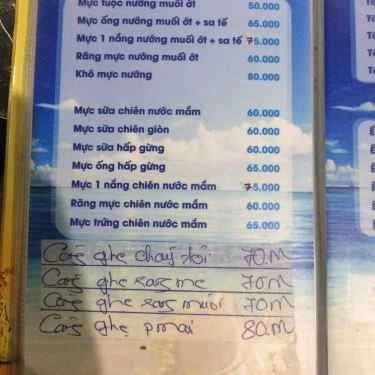 Mực tuộc nướng muối ớt 50.000
Mực ống nướng muối ớt + sa tế 65.000
Mực 1 nắng nướng muối ớt + sa tế 75.000
Răng mực nướng muối ớt 60.000
Khô mực nướng 80.000
Mực sữa chiên nước mắm 60.000
Mực sữa chiên giòn 60.000
Mực sữa hấp gừng 60.000
Mực ống hấp gừng 65.000
Mực 1 nắng chiên nước mắm 75.000
Răng mực chiên nước mắm 60.000
Mực trứng chiên nước mắm 65.000
Càng ghẹ cháy tỏi 70.M
Càng ghẹ rang me 70M
Càng ghẹ rang muối 70M
Càng ghẹ p mai 80.M